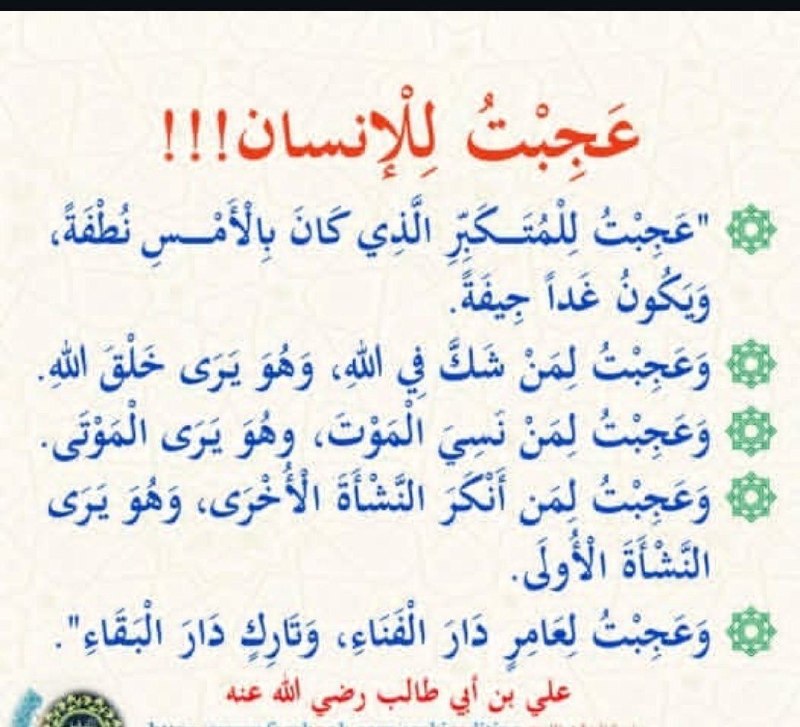 عَجِبْتُ لِلْإنسان!!!
"عَجِبْتُ لِلْمُتَـكَبِّرِ الَّذِي كَانَ بِالْأَمْـسِ نُطْفَةً،
وَيَكُونُ غَداً جِيفَةً.
وَعَجِبْتُ لِمَنْ شَكَّ فِي اللهِ، وَهُوَ يَرَى خَلْقَ اللهِ.
وَعَجِبْتُ لِمَنْ نَسِيَ الْمَوْتَ، وهُوَ يَرَى الْمَوْتَى.
وَعَجِبْتُ لِمَن أَنْكَرَ النَّشْأَةَ الْأُخْرَى، وَهُوَ يَرَى
النَّشْأَةَ الْأُولَى.
وَعَجِبْتُ لِعَامِرٍ دَارَ الْفَنَاءِ، وَتَارِكٍ دَارَ الْبَقَاءِ".
علي بن أبي طالب رضي الله عنه